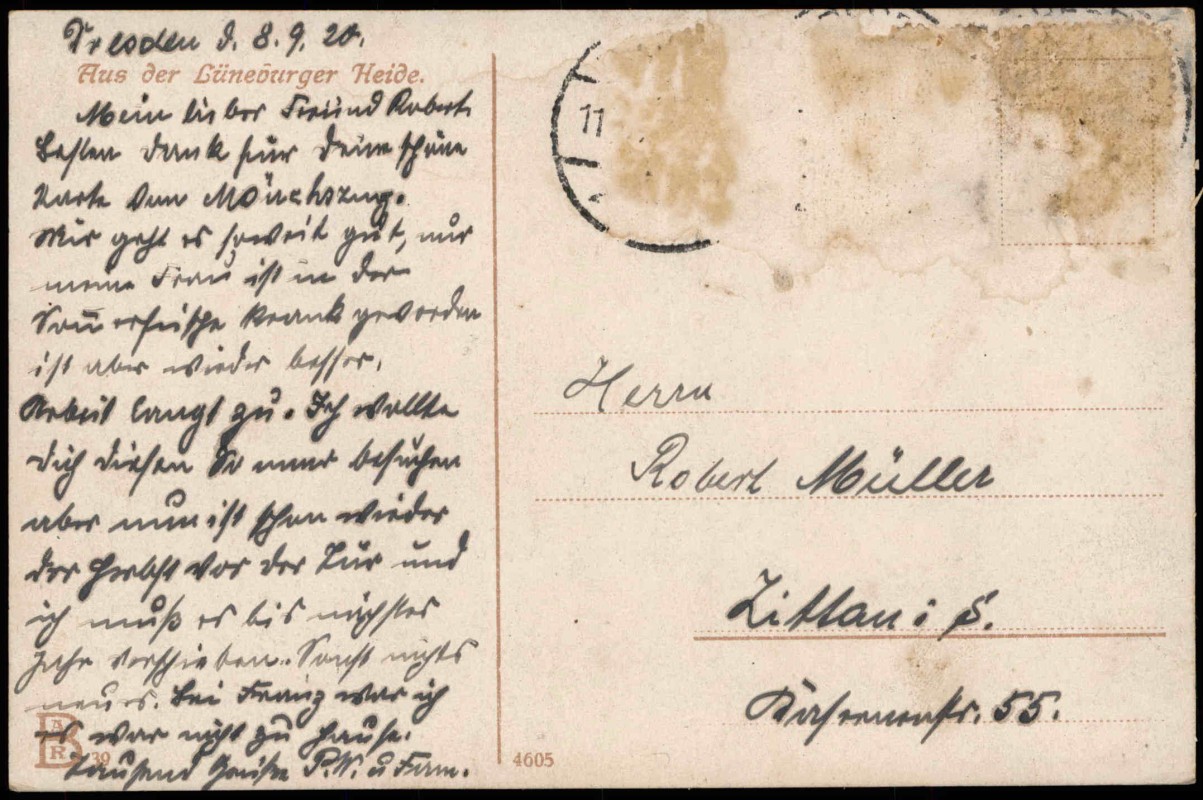 Dresden d. 8.9.20.
Aus der Lüneburger Heide.
Mein lieber Freund Robert
Besten Dank für Deine schöne
Karte vom Mönchszug.
Mir geht es soweit gut, nur
meine Frau ist in der
Som̄erfrische krank geworden
ist aber wieder besser.
Arbeit langt zu. Ich wollte
Dich diesen Sommer besuchen
aber nun ist schon wieder
der Herbst vor der Tür und
ich muß es bis nächstes
Jahr verschieben. Sonst nichts
neues. Bei Franz war ich
es war nicht zu Hause.
Tausend Grüße P.W. u Fam.
BARR 39
4605
11
Herrn
Robert Müller
Zittau i S.
Kasernenstr. 55.